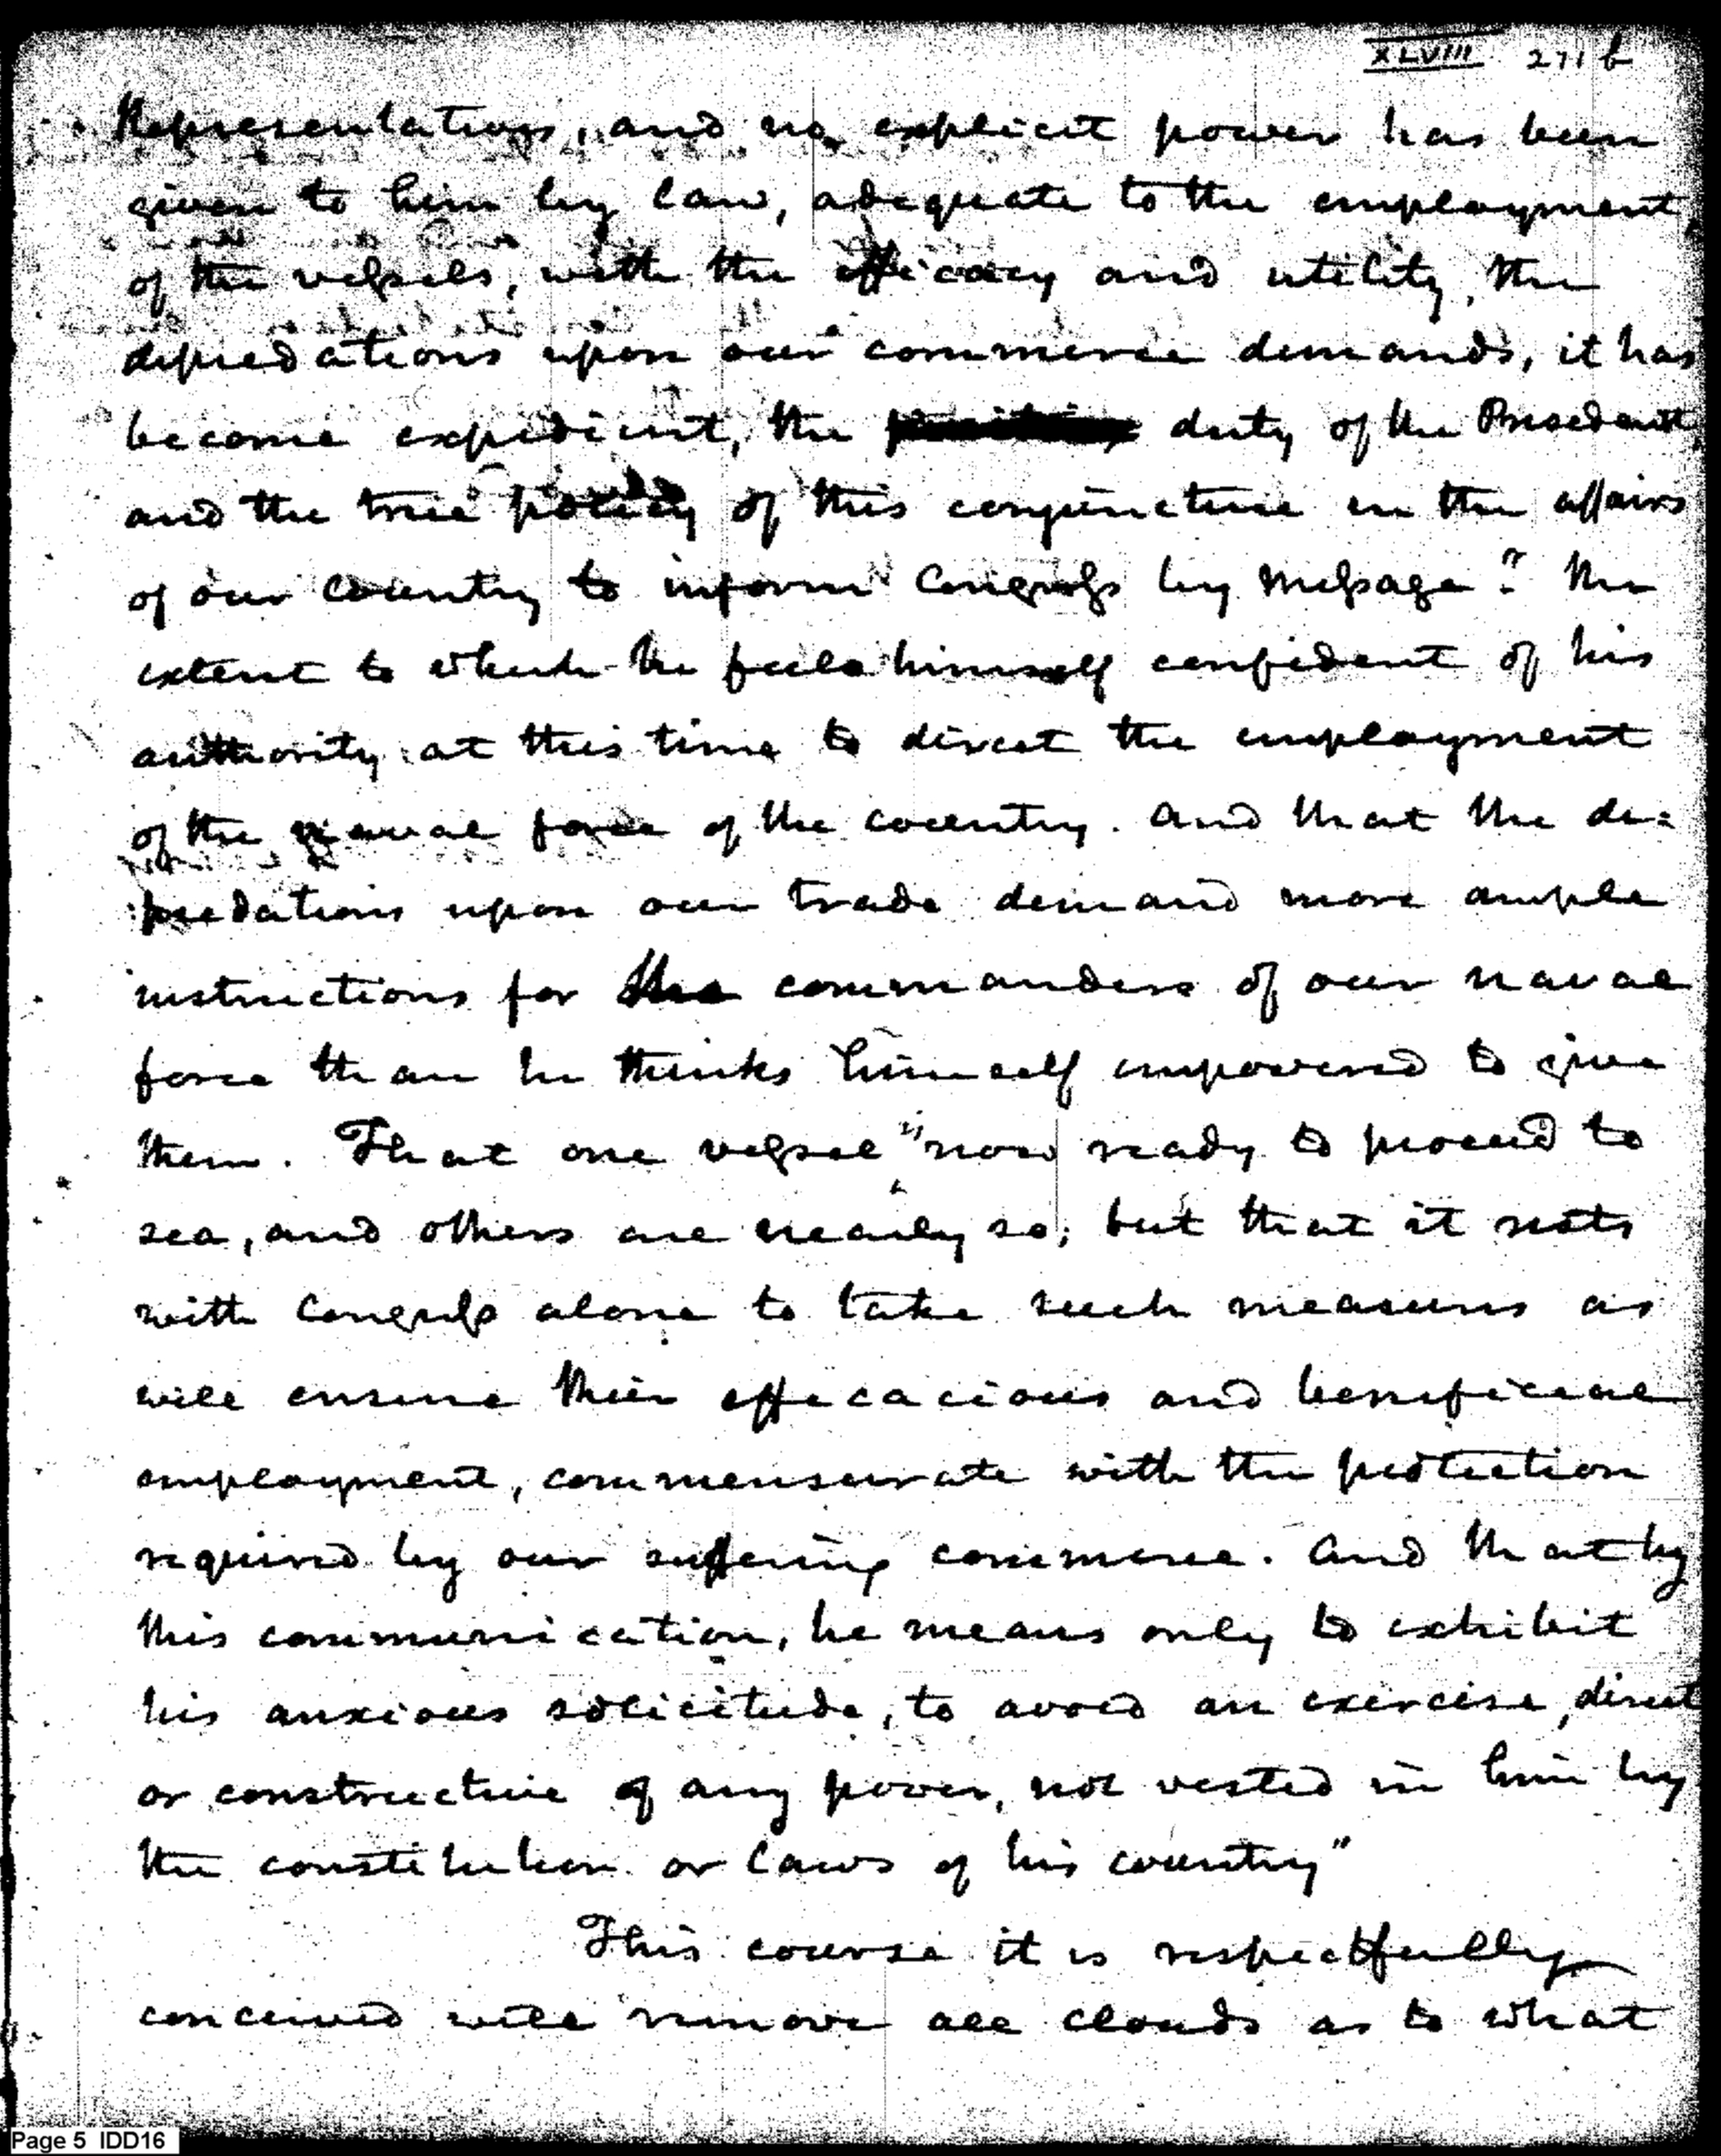 XLVIII 271 b
Representatives, and no explicit power has been
given to him by law, adequate to the employment,
of the vessels, with the efficacy and utility, the
depredations upon our commerce demands, it has
become expedient, the duty of the President,
and the true policy of this conjuncture in the affairs
of our country to inform Congress by Message? The
extent to which he feels himself confident of his
authority at this time to direct the employment
of the naval force of the country. And that the de=
predations upon our trade demand more ample
instructions for the commanders of our naval
force than he thinks himself empowered to give
them. That one vessel " now ready to proceed to
sea, and others are nearly so; but that it rests
with Congress alone to take such measures as
will ensure their efficacious and beneficial
employment, commensurate with the protection
required by our suffering commerce. And that by
this communication, he means only to exhibit
his anxious solicitude, to avoid an exercise, direct
or constructive of any power, not vested in him by
the constitution or laws of his country"
This course it is respectfully
conceived will remove all clouds as to what
Page 5 IDD16